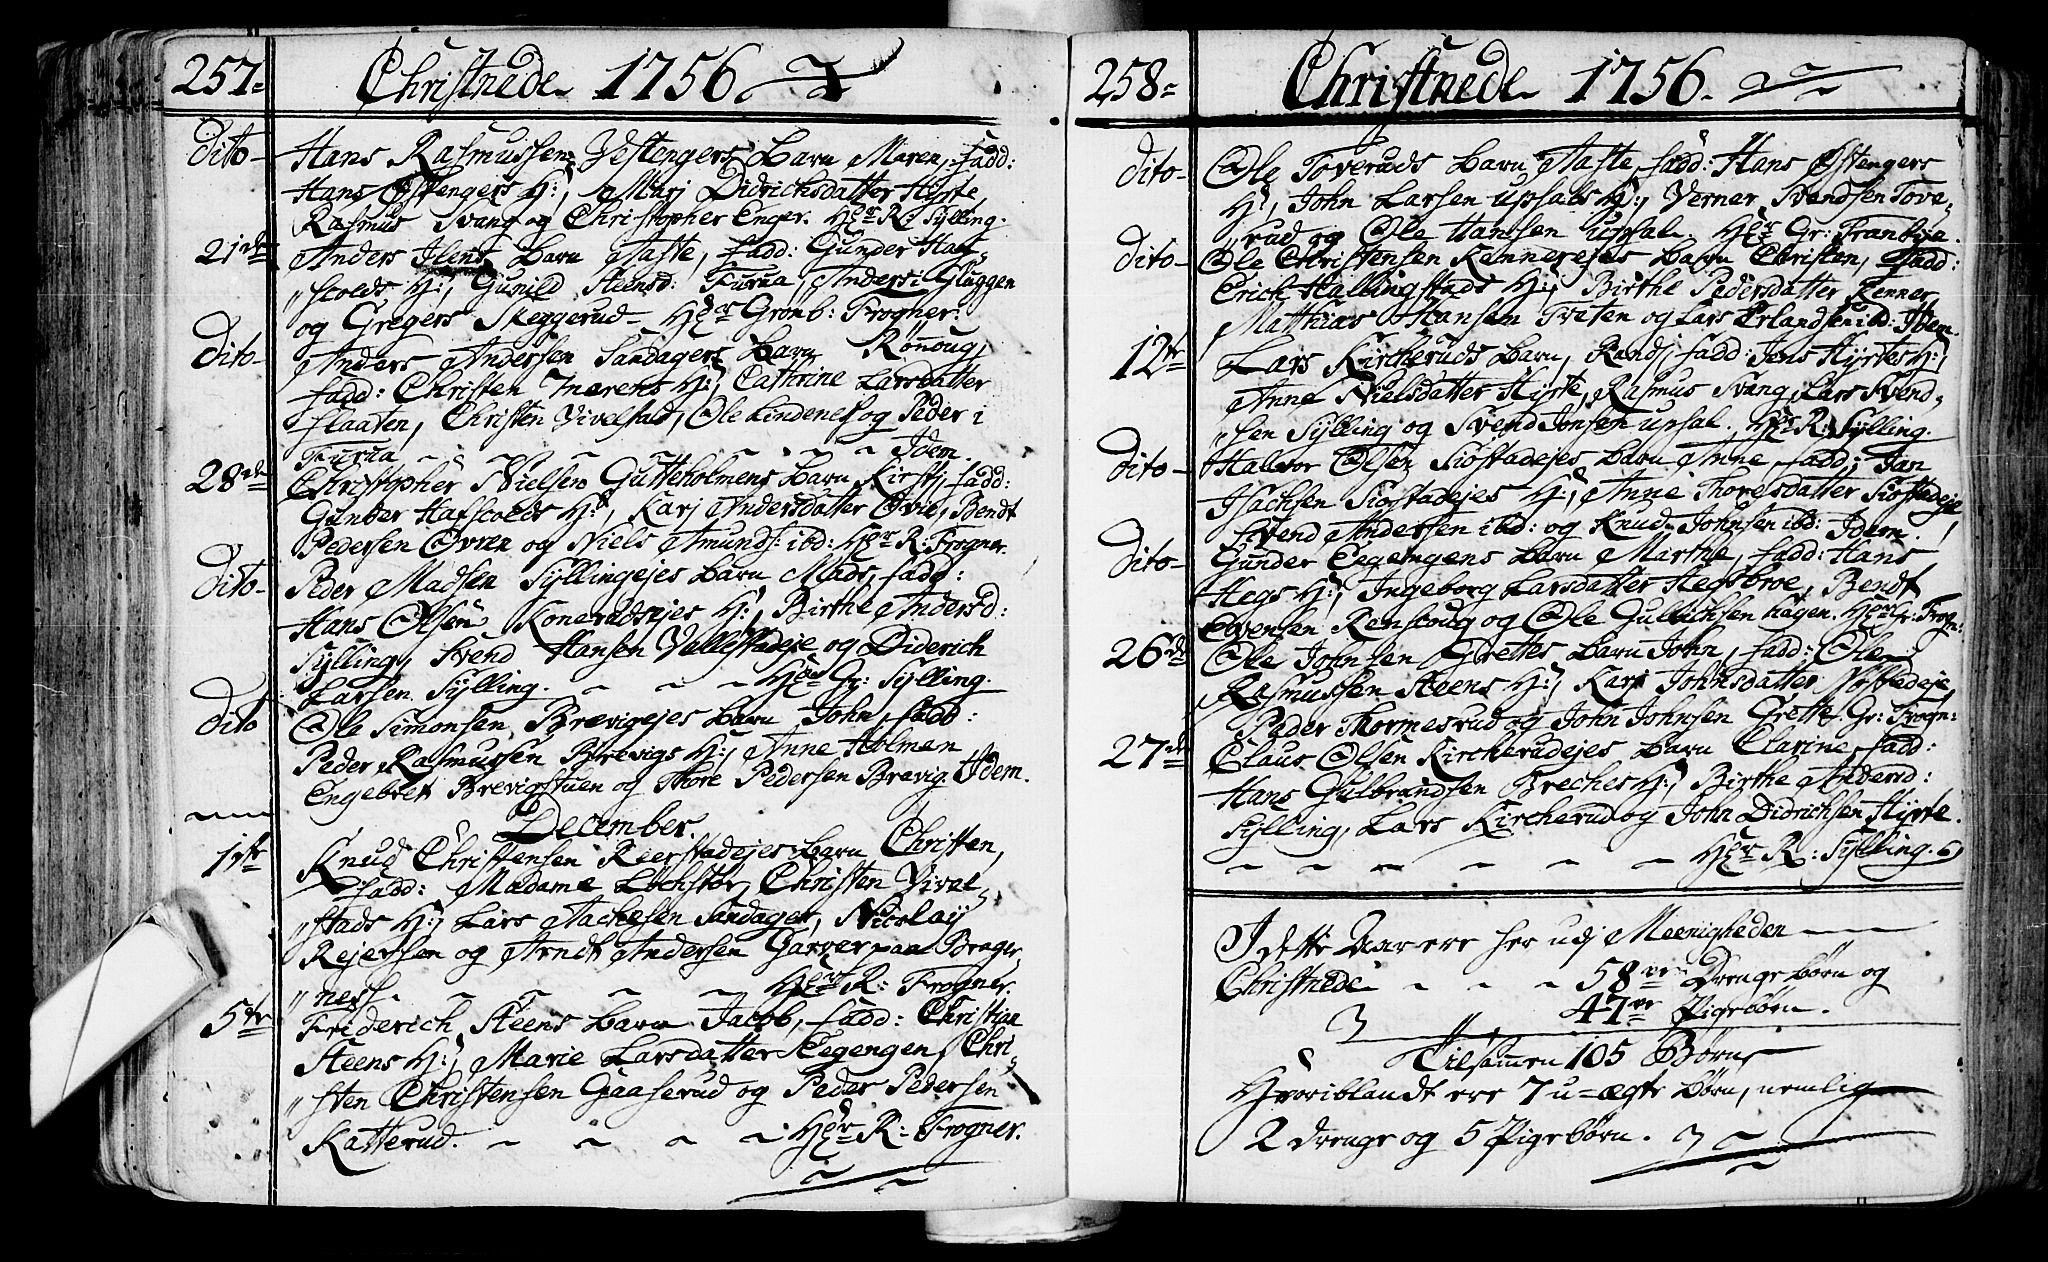 257=
Christnede 1756
Dito- Hans Rasmussen Vestengers barn Maren, fadd:
Hans Østengers H:, Marj Didrichsdatter Hørte,
Rasmus Svang og Christopher Enger. Hr R: Sylling.
21de Anders Ilens barn Aaste, fadd: Gunder Haf=
"scolds H:, Gunild Steensd: Furua, Anders i Gluggen
og Gregers Skeggerud- Hr Grønb: Frogner.
Dito- Anders Andersen Sandagers barn Rønnoug,
fadd: Christen Inærens H:, Cathrine Larsdatter
slaaten, Christen Vivelstad, Ole Lindenes og Peder i
Furua Idem.
28de Christopher Nielsen Gutteholmens barn Kirstj, fadd:
Gunder Hafscolds H:, Karj Andersdatter Øvre, Bendt
Pedersen Øvren og Niels Amunds: ibd: Hr R: Frogner.
Dito- Peder Madsen Syllingejes barn Mads, fadd:
Hans Olsen Konerudsejes H:, Birthe Andersd:
Sylling, Svend Hansen Vallestadeje og Diderich
Larsen Sylling. Hr Gr: Sylling.
Dito Ole Simonsen Brævigejes barn John, fadd:
Peder Rasmussen Brevigs H:, Anne Holmen
Engebret Brevigstuen og Thore Pedersen Brevig. Idem.
December.
1ste Knud Christensen Reerstadejes barn Christen,
fadd: Madame Lochstør, Christen Vivel=
"stads H:, Lars Aachesen Sandager, Nicolay
Rejersen og Arndt Andersen Garver paa Brager,
"ness. Hr R: Frogner.
5te Friderich Steens barn Jacob, fadd: Christian
Steens H:, Marie Larsdatter Eegengen, Chri=
"sten Christensen Gaaserud og Peder Pedersen
Katterud. Hr R: Frogner.
258=
Christnede 1756.
Dito- Ole Toveruds barn Aaste, fadd: Hans Østengers
H:, John Larsen upsals H:, Verner Svendsen Tove=
"rud og Ole Hansen upsal. Hr Gr: Frantzia.
Dito- Ole Christensen Rennerejes barn Christen, fadd:
Erick Hallingstads H:, Birthe Pedersdatter Renner,
Matthias Hansen Tveten og Lars Erlandsen ibd: Idem.
12te Lars Kircheruds barn, Randj, fadd: Jens Hyrtes H:,
Anne Nielsdatter Hyrte, Rasmus Svang, Lars Svend=
"sen Sylling og Svend Jonsen upsal. Hr R: Sylling.
Dito- Halvor Olsen Siøstadejes barn Anne, fadd: Jan
Isachsen Siøstadejes H:, Anne Thoresdatter Siøstadeje,
Svend Andersen ibd: og Knud Johnsen ibd: Idem.
Dito- Gunder Egeengens barn Marthe, fadd: Hans
Hegs H:, Ingeborg Larsdatter Hegsbroe, Bendt
Evensen Renscoug og Ole Gulbichsen hagen. Hr Gr: Frogn:
26de Ole Johnsen Grettes barn John, fadd: Ole
Rasmussen Steens H:, Kari Johnsdatter Nøstedeje,
Peder Thormesrud og John Johnsen Grette. Gr: Frogn:
27de Claus Olsen Kircherudejes barn Clarine, fadd:
Hans Gulbrandsen Breches H:, Birthe Andersd:
Sylling, Lars Kircherud og John Didrichsen Hyrte.
Hr R: Sylling.
I dette Aar ere her udj Meenigheden
Christnede 58ve Drengebørn og
47ve Pigebørn.
Tilsammen 105 Børn
Hvoriblandt ere 7 u=ægte børn, nemlig
2 drenge og 5 Pigebørn.